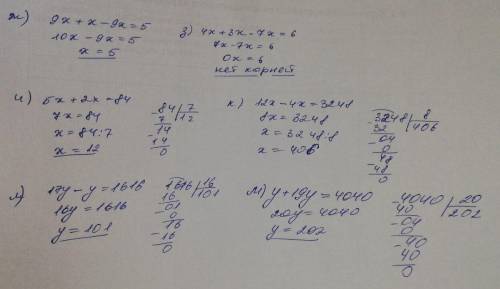 ж) 9x + x - 9x = 5
10x - 9x = 5
x = 5
з) 4x + 3x - 7x = 6
7x - 7x = 6
0x = 6
нет корней
и) 5x + 2x = 84
7x = 84
x = 84:7
x = 12
84 | 7
7 | 12
-14
14
0
к) 12x - 4x = 3248
8x = 3248
x = 3248:8
x = 406
3248 | 8
32 | 406
-04
0
-48
48
0
л) 17y - y = 1616
16y = 1616
y = 101
1616 | 16
16 | 101
-01
0
-16
16
0
м) y + 19y = 4040
20y = 4040
y = 202
4040 | 20
40 | 202
-04
0
-40
40
0